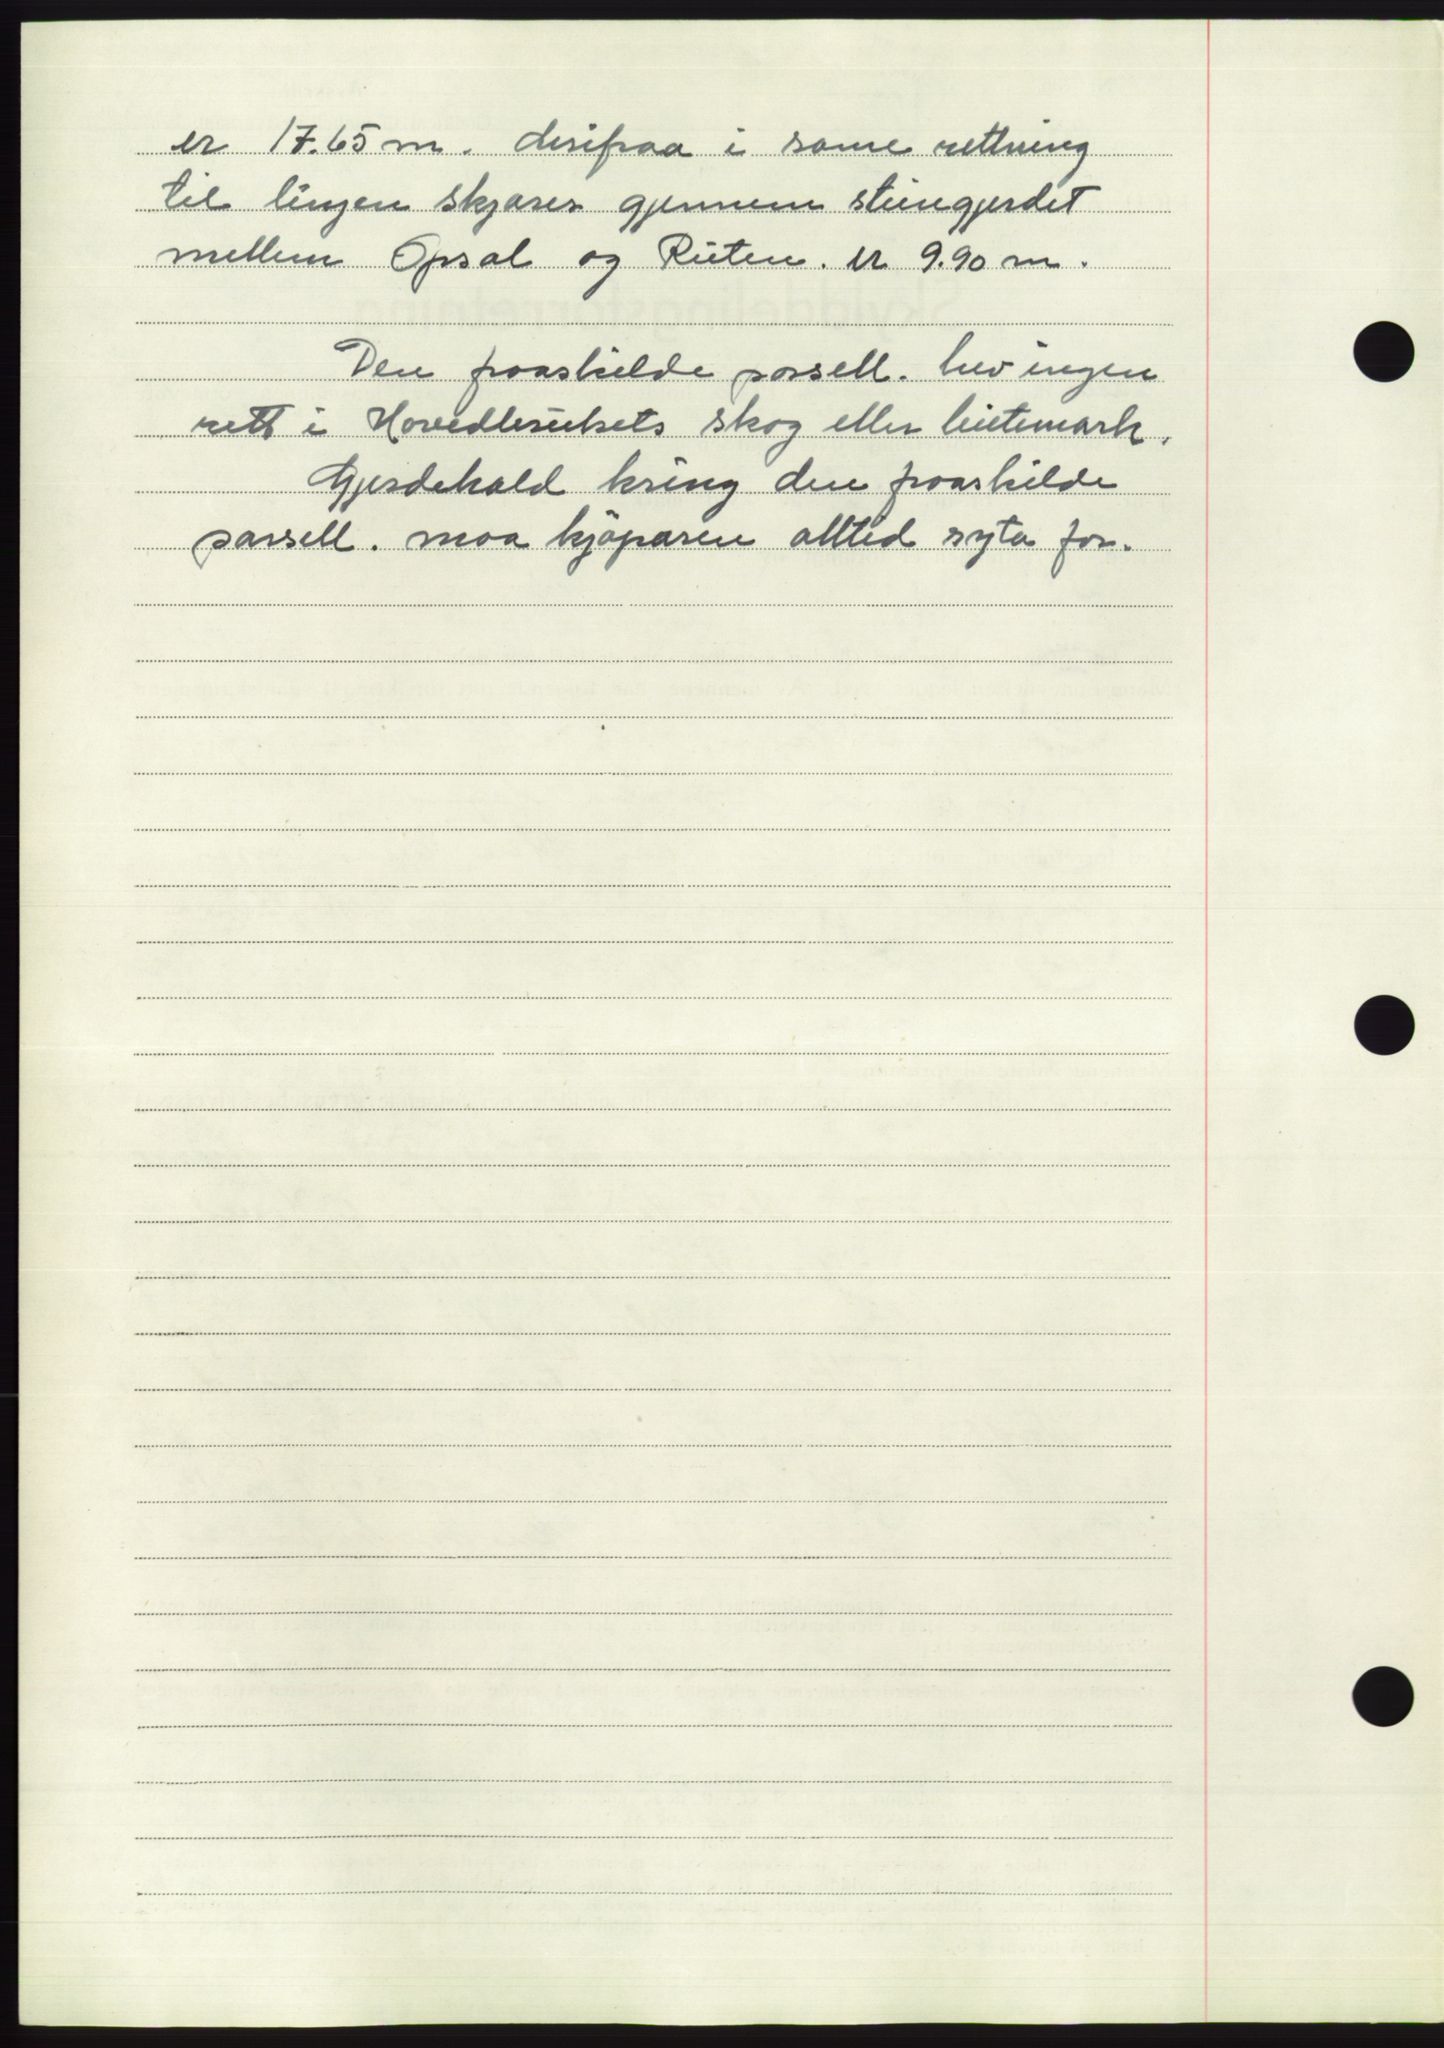 er 17.65 m. derifraa i same rettning
til linjen skjærer gjennem steingjerdet
mellem Opsal og Reiten. er 9.90 m.
Den fraaskilde parsell. hev ingen
rett i Hovedbruksets skog eller beitemark.
Gjerdehald kring den fraaskilde
parsell. maa kjöparen alltid syta for.